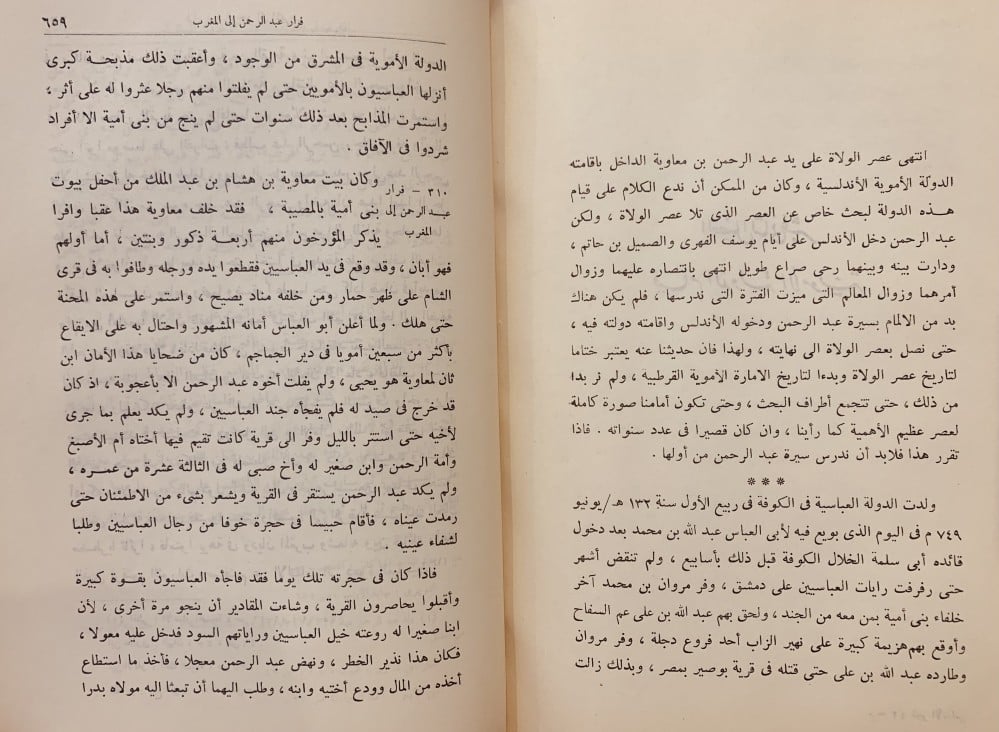 انتهى عصر الولاة على يد عبد الرحمن بن معاوية الداخل باقامته
الدولة الأموية الأندلسية ، وكان من الممكن أن ندع الكلام على قيام
هذه الدولة لبحث خاص عن العصر الذى تلا عصر الولاة ، ولكن
عبد الرحمن دخل الأندلس على أيام يوسف الفهرى والصميل بن حاتم ،
ودارت بينه وبينهما رحى صراع طويل انتهى بانتصاره عليهما وزوال
أمرهما وزوال المعالم التى ميزت الفترة التى ندرسها ، فلم يكن هناك
بد من الالمام بسيرة عبد الرحمن ودخوله الأندلس واقامة دولته فيه ،
حتى نصل بعصر الولاة الى نهايته ، ولهذا فان حديثنا عنه يعتبر ختاما
لتاريخ عصر الولاة وبدءا لتاريخ الامارة الأموية القرطبية ، ولم نر بدا
من ذلك ، حتى تتجمع أطراف البحث ، وحتى تكون أمامنا صورة كاملة
لعصر عظيم الأهمية كما رأينا ، وان كان قصيرا فى عدد سنواته . فاذا
تقرر هذا فلابد أن ندرس سيرة عبد الرحمن من أولها .
***
ولدت الدولة العباسية فى الكوفة فى ربيع الأول سنة ١٣٢ هـ/يونيو
٧٤٩ م فى اليوم الذى بويع فيه لأبى العباس عبد الله بن محمد بعد دخول
قائده أبى سلمة الخلال الكوفة قبل ذلك بأسابيع ، ولم تنقض أشهر
حتى رفرفت رايات العباسيين على دمشق ، وفر مروان بن محمد آخر
خلفاء بنى أمية بمن معه من الجند ، ولحق بهم عبد الله بن على عم السفاح
وأوقع بهم هزيمة كبيرة على نهير الزاب أحد فروع دجلة ، وفر مروان
وطارده عبد الله بن على حتى قتله فى قرية بوصير بمصر ، وبذلك زالت
فرار عبد الرحمن إلى المغرب
٦٥٩
الدولة الأموية فى المشرق من الوجود ، وأعقبت ذلك مذبحة كبرى
أنزلها العباسيون بالأمويين حتى لم يفلتوا منهم رجلا عثروا له على أثر ،
واستمرت المذابح بعد ذلك سنوات حتى لم ينج من بنى أمية الا أفراد
شردوا فى الآفاق .
٣١٠ – فرار
عبد الرحمن إلى
المغرب
وكان بيت معاوية بن هشام بن عبد الملك من أحفل بيوت
بنى أمية بالمصيبة ، فقد خلف معاوية هذا عقبا وافرا
يذكر المؤرخون منهم أربعة ذكور وبنتين ، أما أولهم
فهو أبان ، وقد وقع فى يد العباسيين فقطعوا يده ورجله وطافوا به فى قرى
الشام على ظهر حمار ومن خلفه مناد يصيح ، واستمر على هذه المحنة
حتى هلك . ولما أعلن أبو العباس أمانه المشهور واحتال به على الايقاع
بأكثر من سبعين أمويا فى دير الجماجم ، كان من ضحايا هذا الأمان ابن
ثان لمعاوية هو يحيى ، ولم يفلت أخوه عبد الرحمن الا بأعجوبة ، اذ كان
قد خرج فى صيد له فلم يفجأه جند العباسيين ، ولم يكد يعلم بما جرى
لأخيه حتى استتر بالليل وفر الى قرية كانت تقيم فيها أختاه أم الأصبغ
وأمة الرحمن وابن صغير له وأخ صبى له فى الثالثة عشرة من عمره ،
ولم يكد عبد الرحمن يستقر فى القرية ويشعر بشىء من الاطمئنان حتى
رمدت عيناه ، فأقام حبيسا فى حجرة خوفا من رجال العباسيين وطلبا
لشفاء عينيه .
فاذا كان فى حجرته تلك يوما فقد فاجأه العباسيون بقوة كبيرة
وأقبلوا يحاصرون القرية ، وشاءت المقادير أن ينجو مرة أخرى ، لأن
ابنا صغيرا له روعته خيل العباسيين وراياتهم السود فدخل عليه معولا ،
فكان هذا نذير الخطر ، ونهض عبد الرحمن معجلا ، فأخذ ما استطاع
أخذه من المال وودع أختيه وابنه ، وطلب اليهما أن تبعثا اليه مولاه بدرا